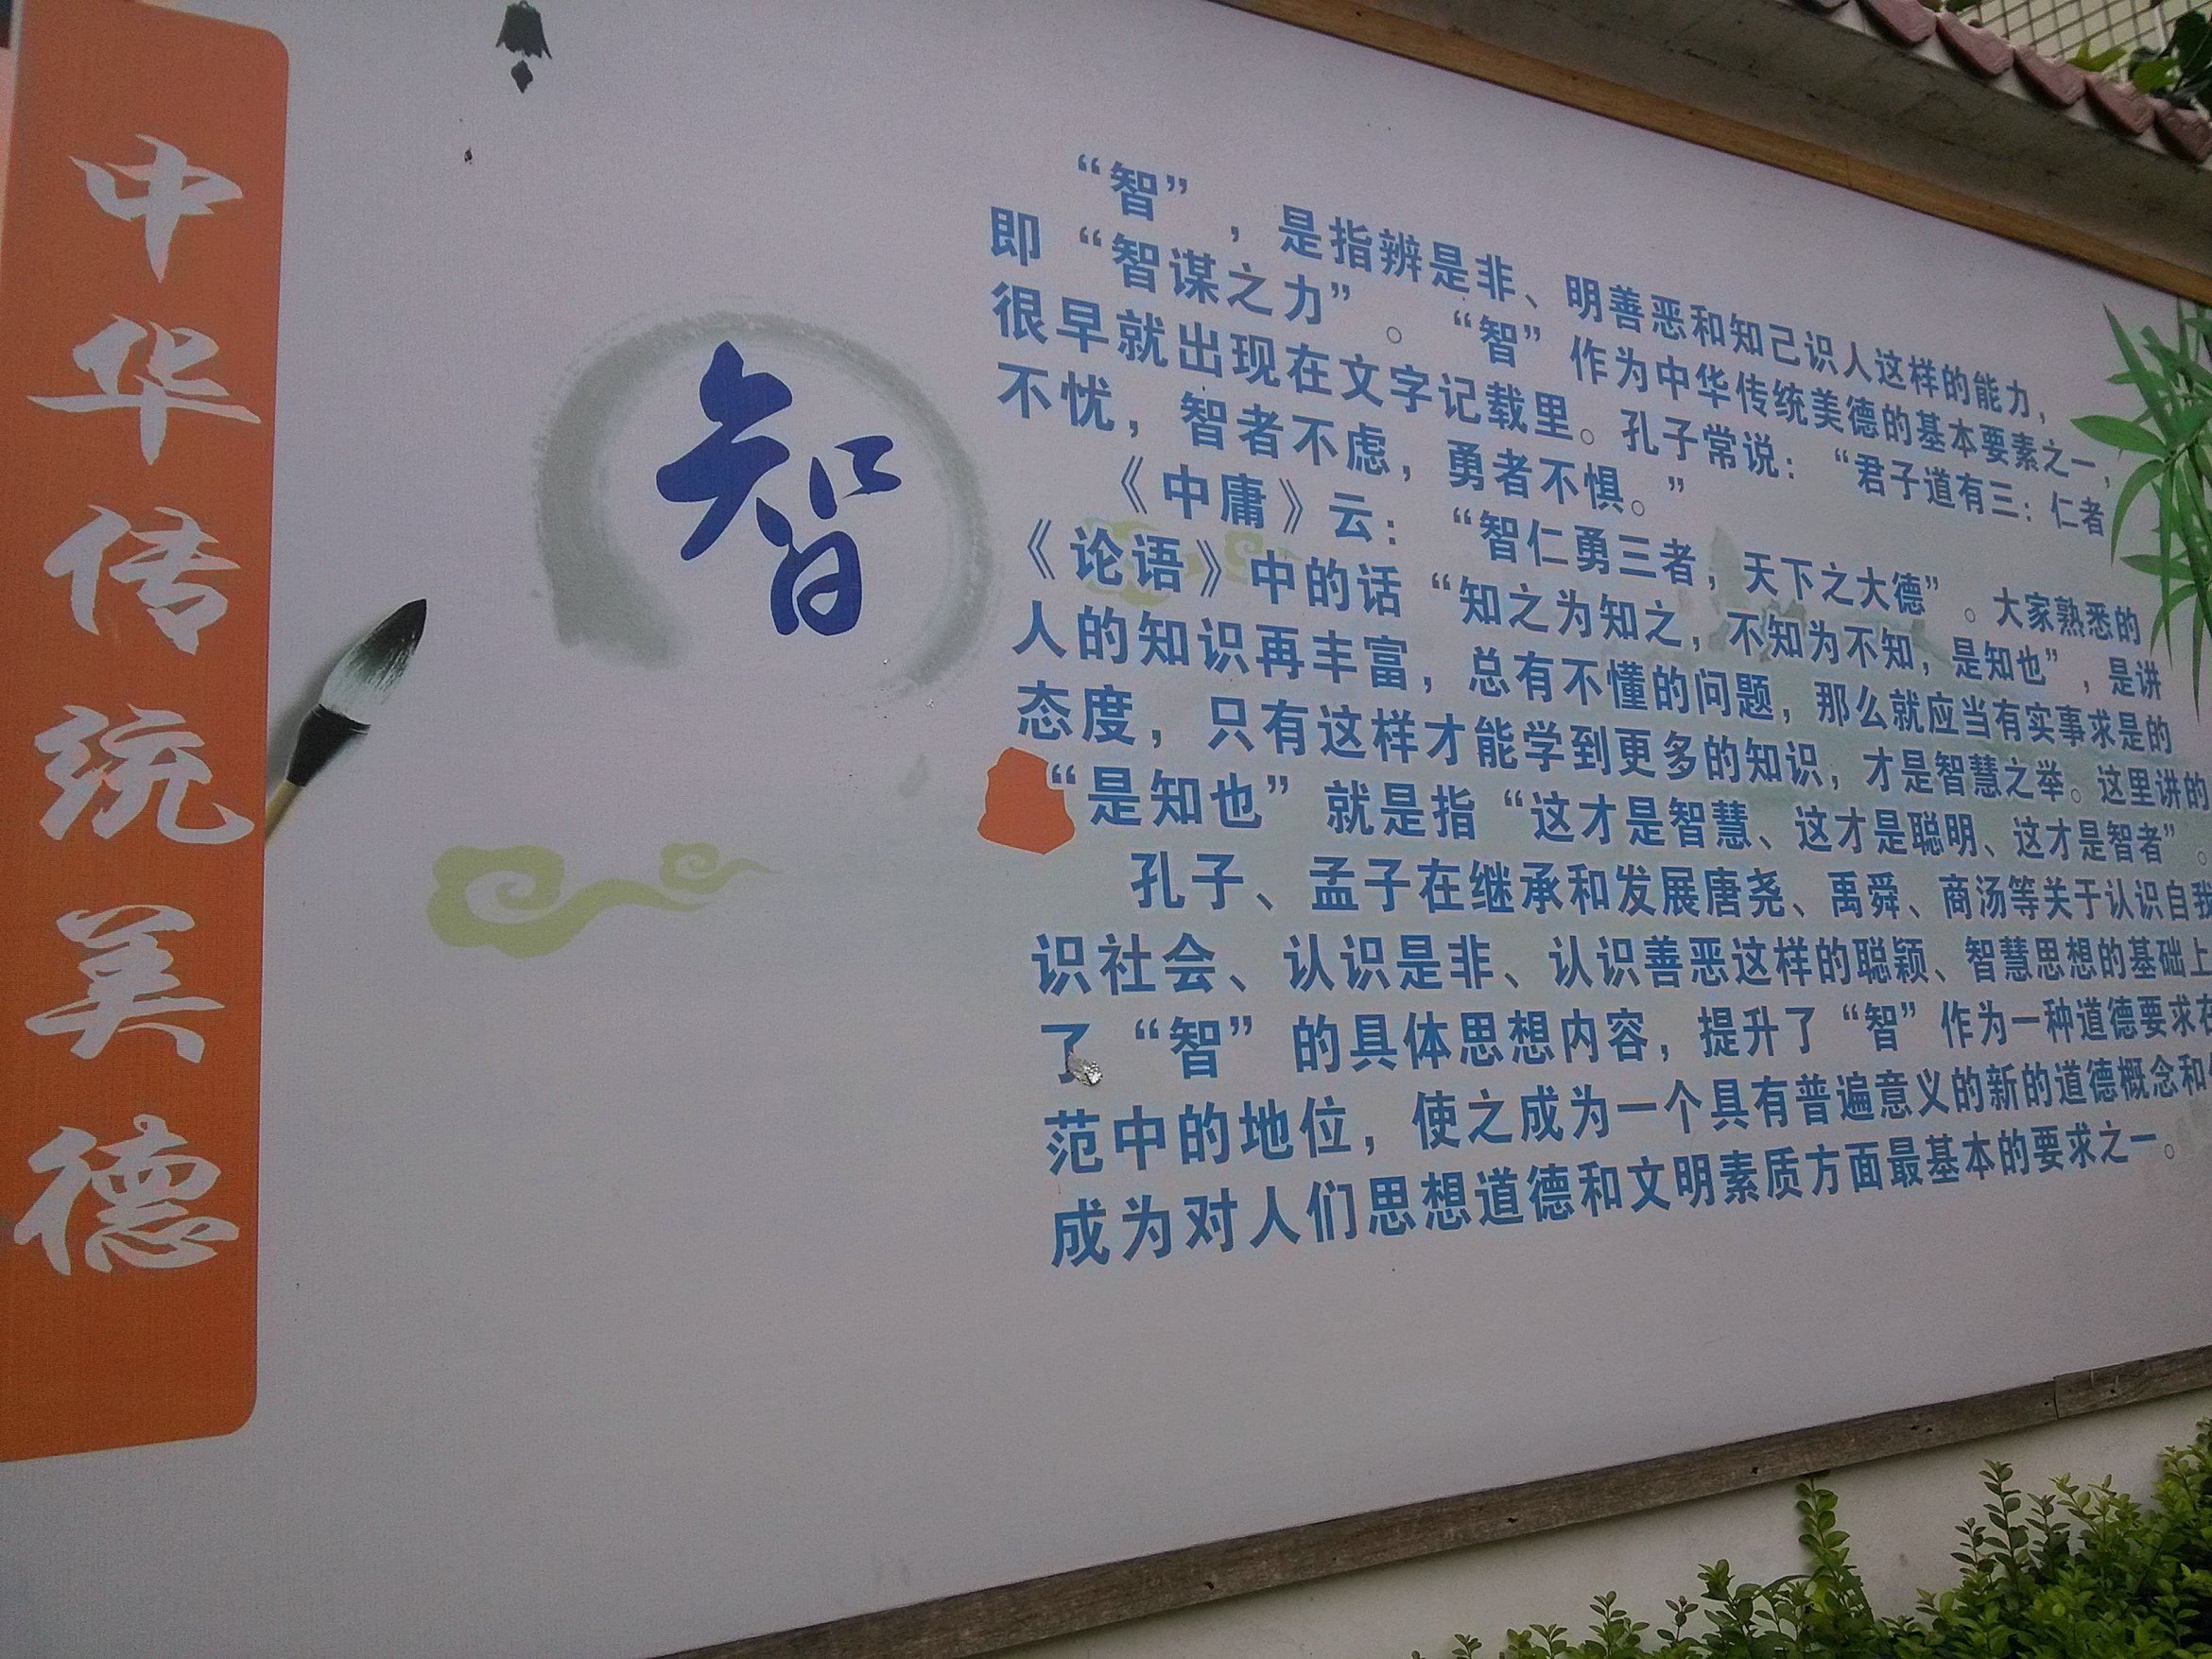 中华传统美德
智
“智”,是指辨是非、明善恶和知己识人这样的能力,
即“智谋之力”。“智”作为中华传统美德的基本要素之一,
很早就出现在文字记载里。孔子常说:“君子道有三:仁者
不忧,智者不虑,勇者不惧。”
《中庸》云:“智仁勇三者,天下之大德”。大家熟悉的
《论语》中的话“知之为知之,不知为不知,是知也”,是讲
人的知识再丰富,总有不懂的问题,那么就应当有实事求是的
态度,只有这样才能学到更多的知识,才是智慧之举。这里讲的
“是知也”就是指“这才是智慧、这才是聪明、这才是智者”。
孔子、孟子在继承和发展唐尧、禹舜、商汤等关于认识自我
识社会、认识是非、认识善恶这样的聪颖、智慧思想的基础上
了“智”的具体思想内容,提升了“智”作为一种道德要求在
范中的地位,使之成为一个具有普遍意义的新的道德概念和
成为对人们思想道德和文明素质方面最基本的要求之一。